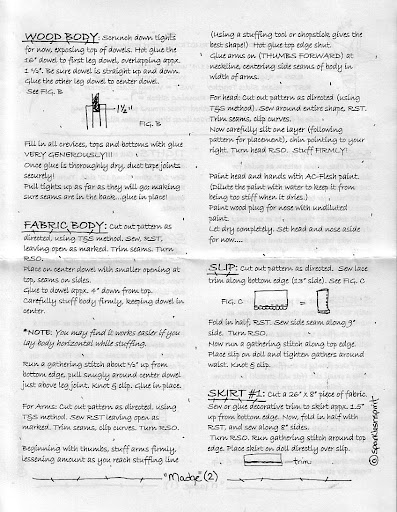 WOOD BODY: Scrunch down tights
for now, exposing top of dowels. Hot glue the
16" dowel to first leg dowel, overlapping appx.
1 ½". Be sure dowel is straight up and down.
Glue the other leg dowel to center dowel.
See FIG. B
1½"
FIG. B
Fill in all crevices, tops and bottoms with glue
VERY GENEROUSLY!!!
Once glue is thoroughly dry, duct tape joints
securely!
Pull tights up as far as they will go making
sure seams are in the back...glue in place!
FABRIC BODY: Cut out pattern as
directed, using T&S method. Sew, RST,
leaving open as marked. Trim seams. Turn
RSO.
Place on center dowel with smaller opening at
top, seams on sides.
Glue to dowel appx. 4" down from top.
Carefully stuff body firmly, keeping dowel in
center.
*NOTE: You may find it works easier if you
lay body horizontal while stuffing.
Run a gathering stitch about ½" up from
bottom edge, pull snugly around center dowel
just above leg joint. Knot & clip. Glue in place.
For Arms: Cut out pattern as directed, using
T&S method. Sew RST leaving open as
marked. Trim seams, clip curves. Turn RSO.
Beginning with thumbs, stuff arms firmly,
lessening amount as you reach stuffing line
(Using a stuffing tool or chopstick gives the
best shape!) Hot glue top edge shut.
Glue arms on (THUMBS FORWARD) at
neckline, centering side seams of body in
width of arms.
For head: Cut out pattern as directed (using
T&S method). Sew around entire shape, RST.
Trim seams, clip curves.
Now carefully slit one layer (following
pattern for placement), chin pointing to your
right. Turn head RSO. Stuff FIRMLY!
Paint head and hands with AC-Flesh paint.
(Dilute the paint with water to keep it from
being too stiff when it dries.)
Paint wood plug for nose with undiluted
paint.
Let dry completely. Set head and nose aside
for now....
SLIP: Cut out pattern as directed. Sew lace
trim along bottom edge (13" side). See FIG. C
FIG. C
=
Fold in half, RST. Sew side seam along 9"
side. Turn RSO.
Now run a gathering stitch along top edge.
Place slip on doll and tighten gathers around
waist. Knot & clip.
SKIRT #1: Cut a 26" x 8" piece of fabric.
Sew or glue decorative trim to skirt appx. 1.5"
up from bottom edge. Now, fold in half with
RST, and sew along 8" sides.
Turn RSO. Run gathering stitch around top
edge. Place skirt on doll directly over slip.
trim
"Madge" (2)